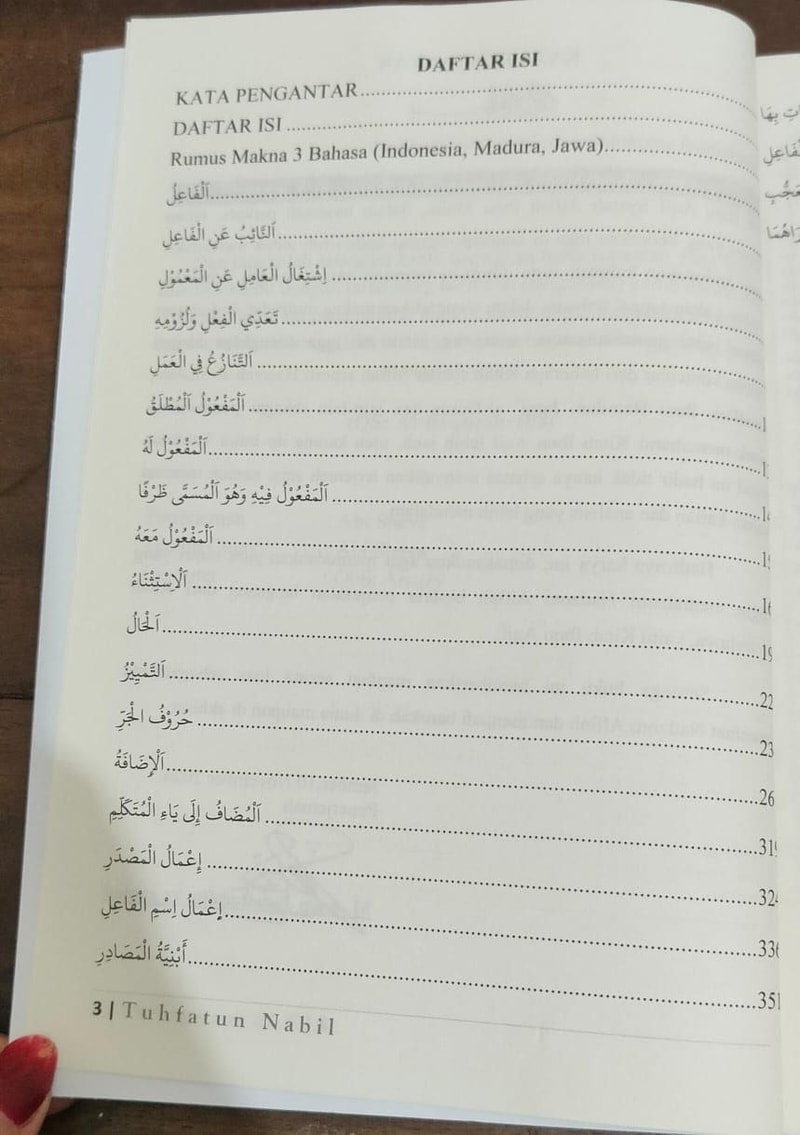 DAFTAR ISI
KATA PENGANTAR
DAFTAR ISI
Rumus Makna 3 Bahasa (Indonesia, Madura, Jawa)
اَلْفَاعِلُ
اَلنَّائِبُ عَنِ الْفَاعِلِ
اِشْتِغَالُ الْعَامِلِ عَنِ الْمَعْمُوْلِ
تَعَدِّي الْفِعْلِ وَلُزُوْمِهِ
اَلتَّنَازُعُ فِي الْعَمَلِ
اَلْمَفْعُوْلُ اَلْمُطْلَقُ
اَلْمَفْعُوْلُ لَهُ
اَلْمَفْعُوْلُ فِيْهِ وَهُوَ اَلْمُسَمَّى ظَرْفًا
اَلْمَفْعُوْلُ مَعَهُ
اَلْاِسْتِثْنَاءُ
اَلْحَالُ
اَلتَّمْيِيْزُ
حُرُوْفُ الْجَرِّ
اَلْإِضَافَةُ
اَلْمُضَافُ إِلَى يَاءِ الْمُتَكَلِّمِ
إِعْمَالُ الْمَصْدَرِ
إِعْمَالُ اِسْمِ الْفَاعِلِ
أَبْنِيَّةُ الْمَصَادِرِ
3 | Tuhfatun Nabil